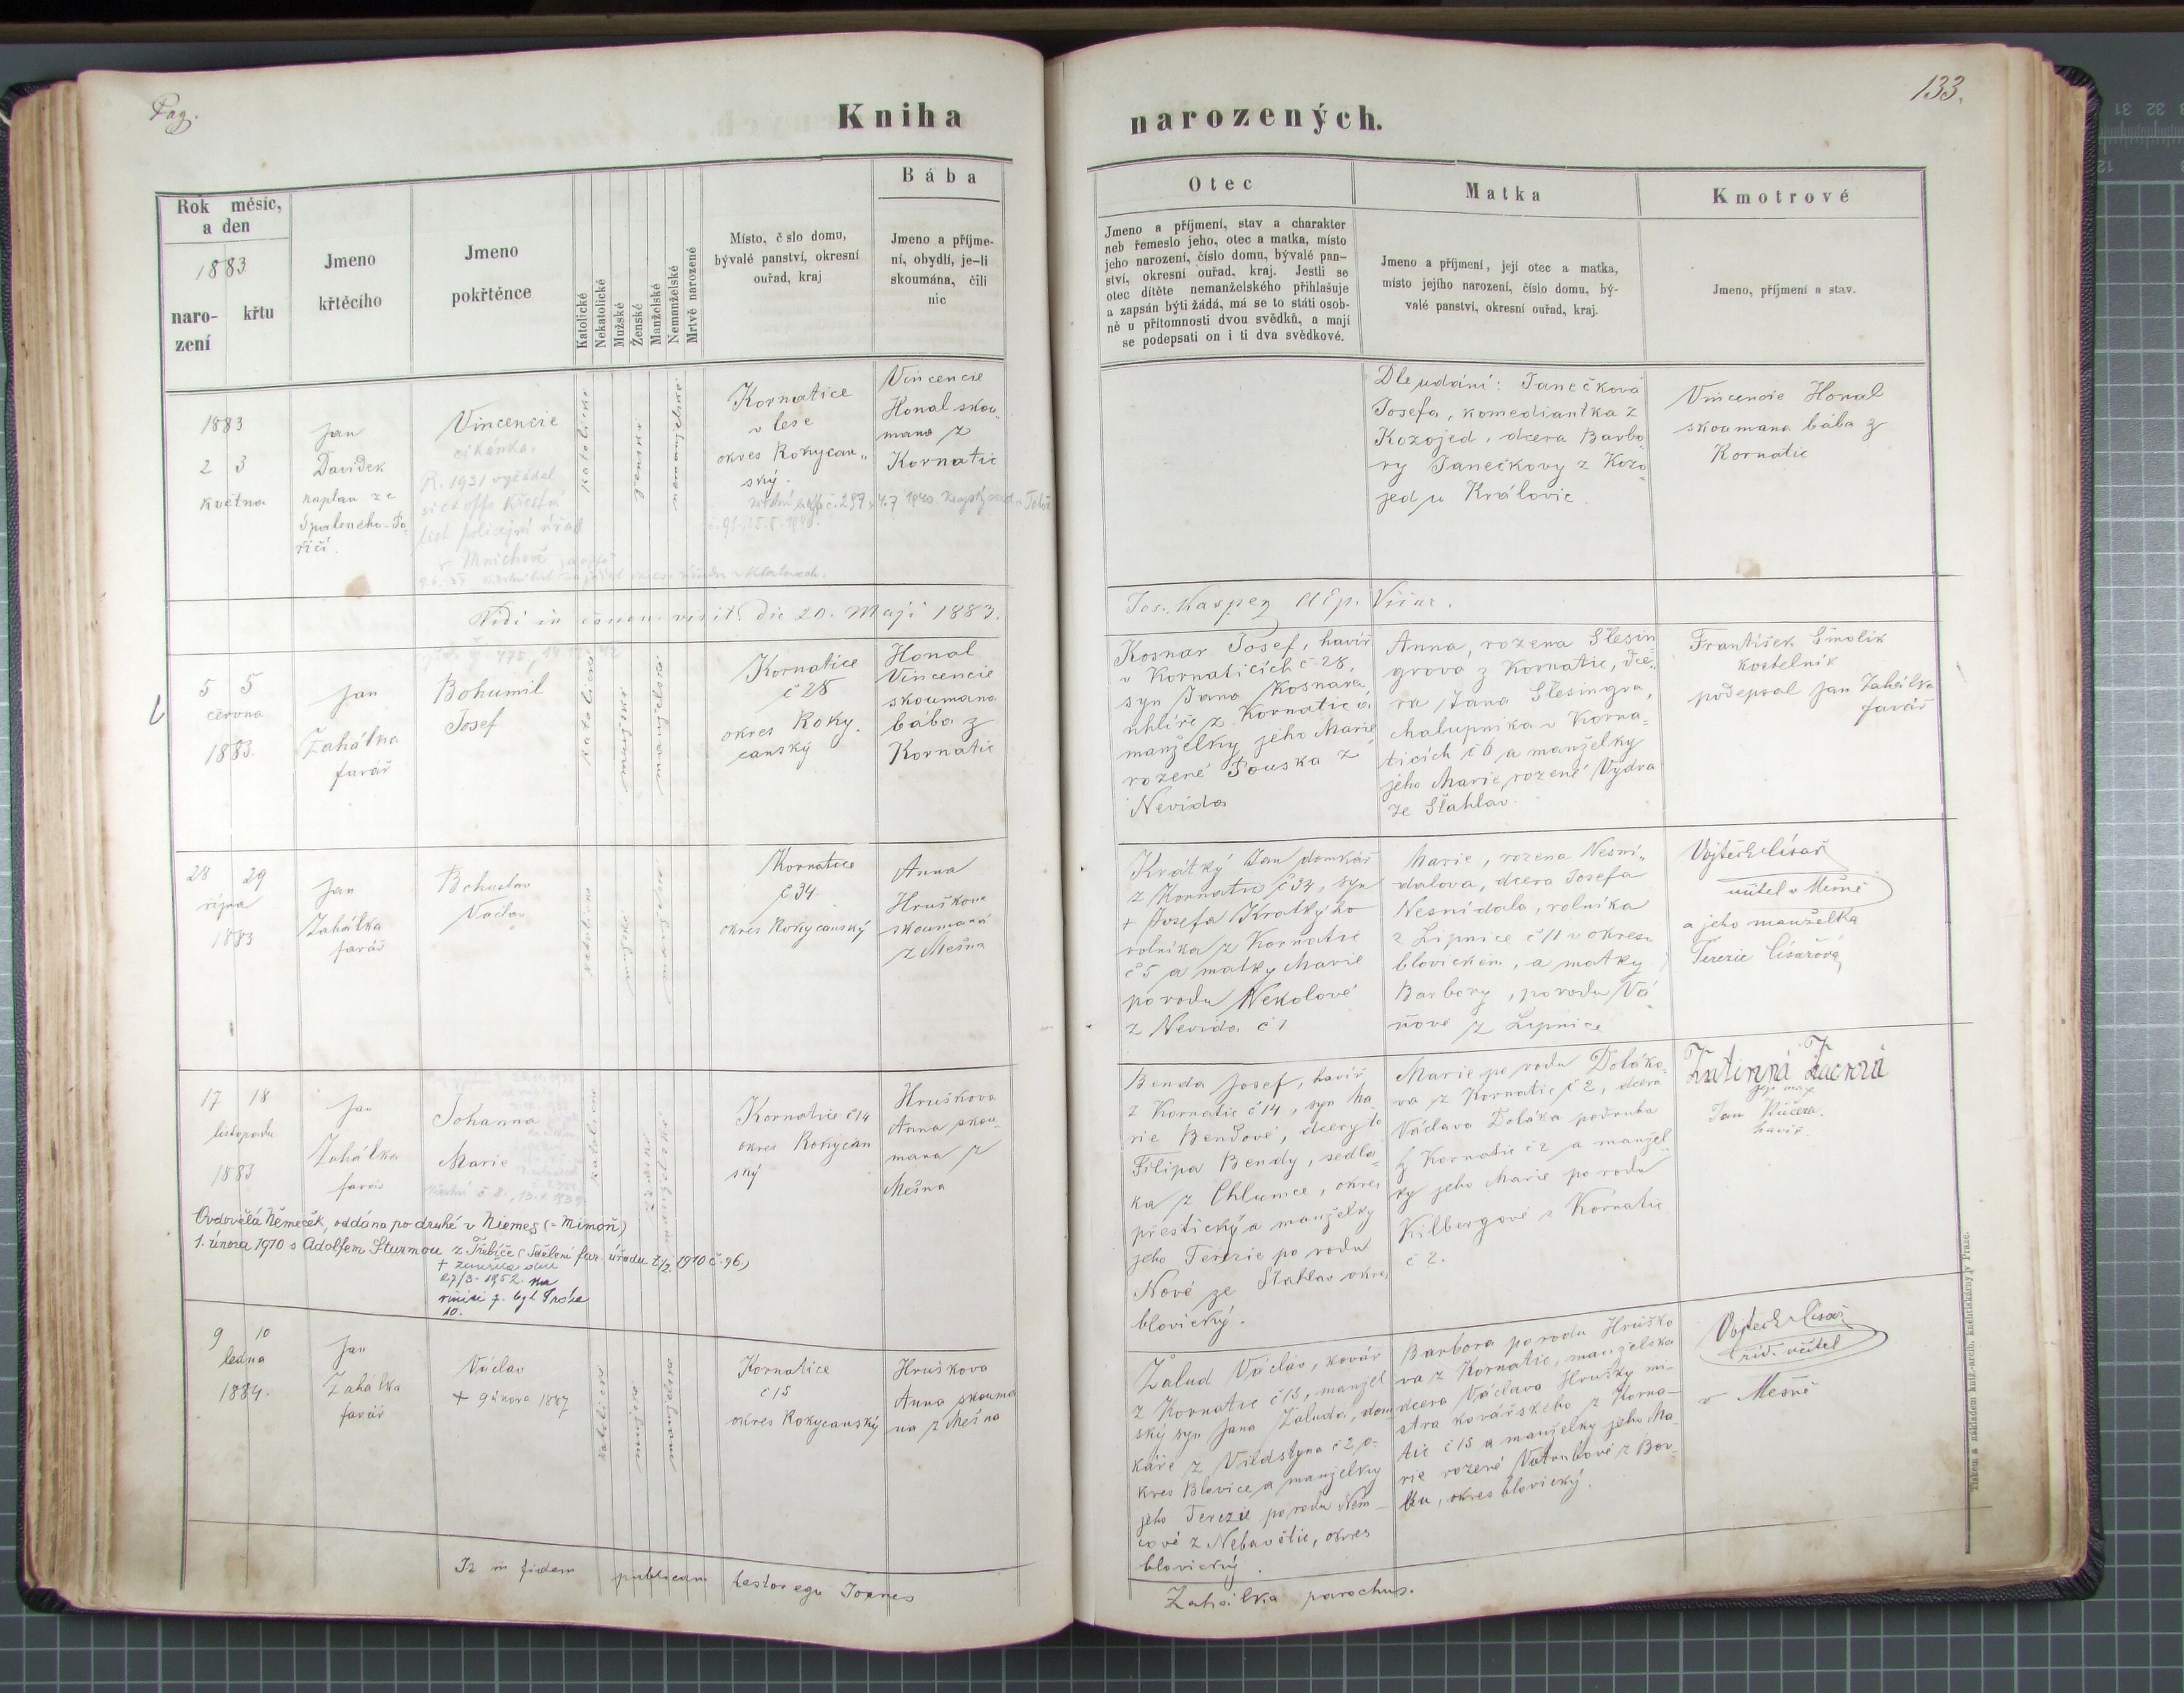 Pag.
Kniha
narozených.
133.
Rok měsíc,
a den
1883
naro-
zení
křtu
Jmeno
křtěcího
Jmeno
pokřtěnce
Katolické
Nekatolické
Mužské
Ženské
Manželské
Nemanželské
Mrtvě narozené
Místo, č slo domu,
bývalé panství, okresní
ouřad, kraj
Bába
Jmeno a příjme-
ní, obydlí, je-li
skoumána, čili
nic
Otec
Jmeno a příjmení, stav a charakter
neb řemeslo jeho, otec a matka, místo
jeho narození, číslo domu, bývalé pan-
ství, okresní ouřad, kraj. Jestli se
otec dítěte nemanželského přihlašuje
a zapsán býti žádá, má se to státi osob-
ně u přítomnosti dvou svědků, a mají
se podepsati on i ti dva svědkové.
Matka
Jmeno a příjmení, její otec a matka,
místo jejího narození, číslo domu, bý-
valé panství, okresní ouřad, kraj.
Kmotrové
Jmeno, příjmení a stav.
1883
2 3
května
Jan
Davídek
kaplan ze
Spáleného-Po-
říčí.
Vincencie
cikánka.
R. 1931 vyžádal
si ex offo křestní
list policejní úřad
v Mnichově
katolické
ženské
nemanželské
Kornatice
v lese
okres Rokycan„
ský.
Vincencie
Honal skou„
mana z
Kornatic
Dle udání: Janečková
Josefa, komediantka z
Kozojed, dcera Barbo-
ry Janečkovy z Kozo
jed u Královic.
Vincencie Honal
skoumana bába z
Kornatic
Vidi in canon. visit. die 20. Maji 1883.
Jos. Kasper AEp. Vicar.
5 5
června
1883.
Jan
Zahálka
farář
Bohumil
Josef
katolické
mužské
manželské
Kornatice
č 28
okres Roky-
canský
Honal
Vincencie
skoumana
bába z
Kornatic
Kosnar Josef, havíř
v Kornaticích č 28,
syn Jana Kosnara,
uhlíře z Kornatic a
manželky jeho Marie,
rozené Pouska z
Nevida
Anna, rozena Šlesin
grova z Kornatic, dce„
ra Jana Šlesingra,
chalupníka v Korna-
ticích č 6 a manželky
jeho Marie, rozené Vydra
ze Šťahlav.
František Smolik
kostelník
podepsal Jan Zahálka
farář
28 29
října
1883
Jan
Zahálka
farář
Bohuslav
Václav
katolické
mužské
manželské
Kornatice
č 34
okres Rokycanský
Anna
Hruškova
skoumaná
z Mešna
Krátký Jan domkář
z Kornatic č 34, syn
+ Josefa Kratkýho
rolníka z Kornatic
č 5 a matky Marie
po rodu Nekolové
z Nevida č 1
Marie, rozena Nesní„
dalova, dcera Josefa
Nesnídala, rolníka
z Lipnice č 11 v okresu
blovickém, a matky
Barbory, po rodu Vá-
ňové z Lipnice
Vojtěch Císař
učitel v Mešně
a jeho manželka
Terezie Císařová
17 18
listopadu
1883
Jan
Zahálka
farář
Johanna
Marie
katolické
ženské
manželské
Kornatice č 14
okres Rokycan
ský
Hruškova
Anna skou-
mana z
Mešna
Ovdovělá Němeček, oddána po druhé v Niemes (= Mimoň)
1. února 1910 s Adolfem Sturmou z Třebíče (Sdělení far. úřadu 2/2 1910 č. 96.)
+ zemřela dne
27/3. 1952. na
10.
Benda Josef, havíř
z Kornatic č 14, syn Ma-
rie Bendové, dcery to
Filipa Bendy, sedlá-
ka z Chlumce, okres
přestický a manželky
jeho Terezie po rodu
Nové ze Šťahlav okres
blovický.
Marie po rodu Doláko-
va z Kornatic č 2, dcera
Václava Doláka podruha
z Kornatic č 2 a manžel-
ky jeho Marie po rodu
Kilbergové z Kornatic
č 2.
Jan Kučera.
havíř.
9 10
ledna
1884.
Jan
Zahálka
farář
Václav
+ 9 února 1887
katolické
mužské
manželské
Kornatice
č 15
okres Rokycanský
Hruškova
Anna skouma
na z Mešna
Žalud Václav, kovář
z Kornatic č 15, manžel
ský syn Jana Žaluda, dom-
káře z Vildstyna č 2 o-
kres Blovice a manželky
jeho Terezie po rodu Něm-
cové z Nebavětic, okres
blovický.
Barbora po rodu Hruško
va z Kornatic, manželska
dcera Václava Hrušky mi-
stra kovářského z Korna-
tic č 15 a manželky jeho Ma-
rie rozené Votrubové z Bor-
ku, okres blovický.
Vojtěch Císař
říd. učitel
v Mešně
In fidem publicam testor ego Joannes
Zahálka parochus.
Tiskem a nákladem kníž.-arcib. knihtiskárny v Praze.